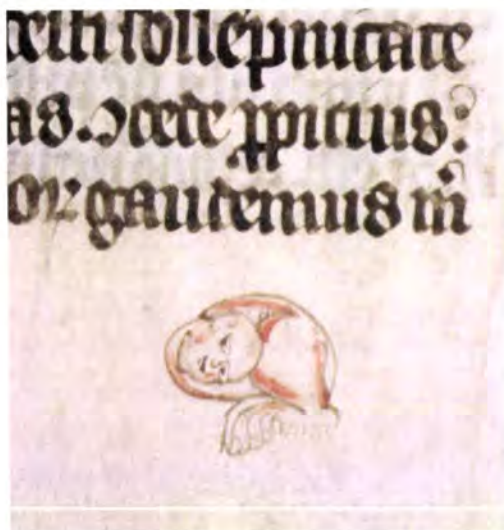 sollēpnitate
as. ꝯcede ꝓpicius:
or gaudemus m̄